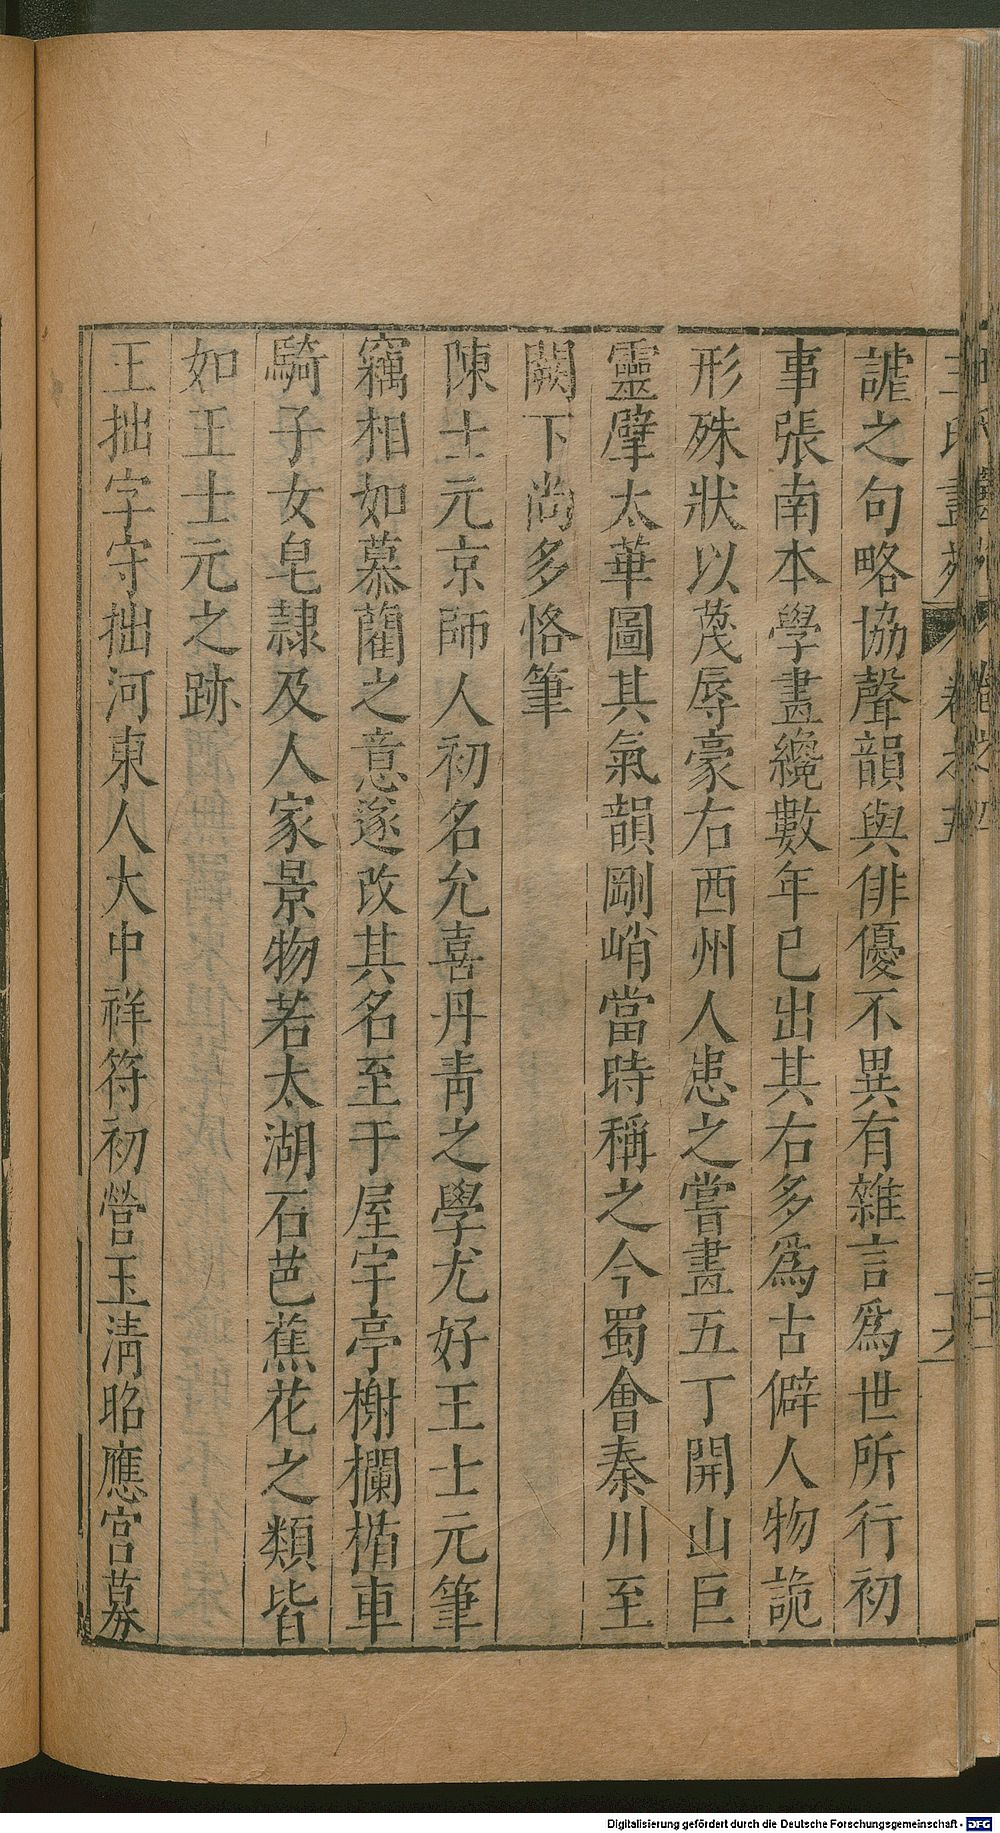 謔之句略協聲韻與俳優不異有雜言爲世所行初
事張南本學畫纔數年已出其右多爲古僻人物詭
形殊狀以蔑辱豪右西州人患之嘗畫五丁開山巨
靈擘太華圖其氣韻剛峭當時稱之今蜀會秦川至
闕下尚多恪筆
陳士元京師人初名允喜丹青之學尤好王士元筆
竊相如慕藺之意遂改其名至于屋宇亭榭欄楯車
騎子女皂隸及人家景物若太湖石芭蕉花之類皆
如王士元之跡
王拙字守拙河東人大中祥符初營玉清昭應宮募
Digitalisierung gefördert durch die Deutsche Forschungsgemeinschaft - DFG